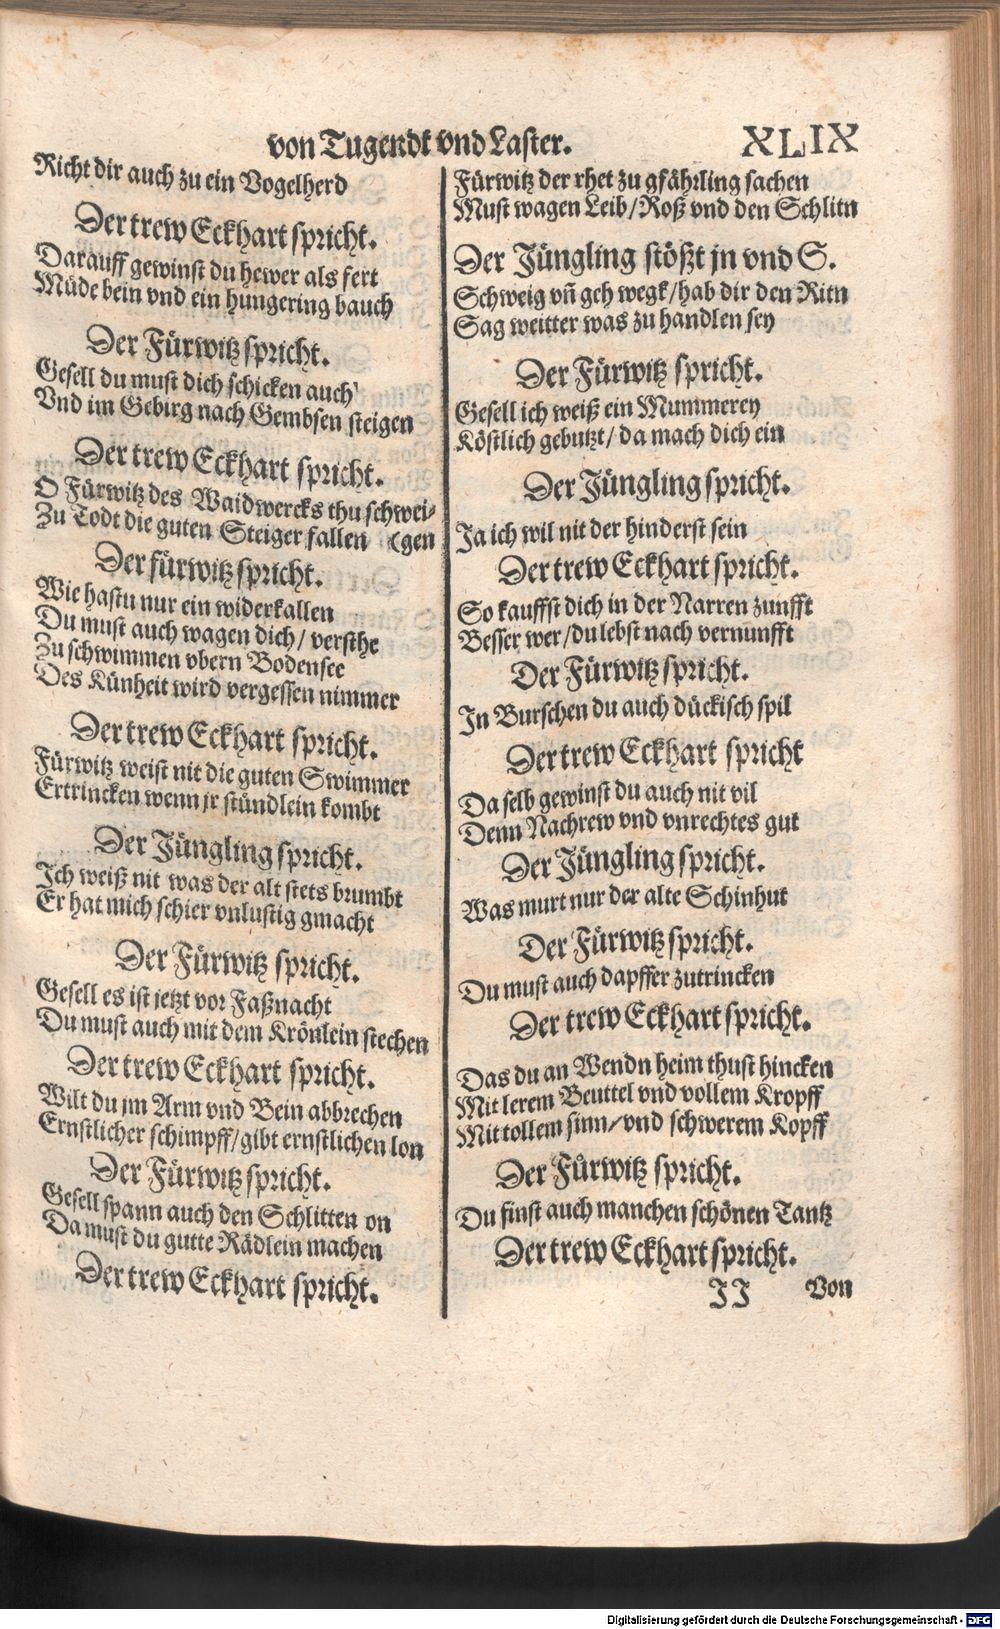 von Tugendt vnd Laster. XLIX
Richt dir auch zu ein Vogelherd
Der trew Eckhart spricht.
Darauff gewinst du hewer als fert
Müde bein vnd ein hungering bauch
Der Fürwitz spricht.
Gesell du must dich schicken auch
Vnd im Gebirg nach Gembsen steigen
Der trew Eckhart spricht.
O Fürwitz des Waidwercks thu schwei-
Zu Todt die guten Steiger fallen (gen
Der fürwitz spricht.
Wie hastu nur ein widerkallen
Du must auch wagen dich/ versthe
Zu schwimmen vbern Bodensee
Des Künheit wird vergessen nimmer
Der trew Eckhart spricht.
Fürwitz weist nit die guten Swimmer
Ertrincken wenn jr stündlein kombt
Der Jüngling spricht.
Ich weiß nit was der alt stets brumbt
Er hat mich schier vnlustig gmacht
Der Fürwitz spricht.
Gesell es ist jetzt vor Faßnacht
Du must auch mit dem Krönlein stechen
Der trew Eckhart spricht.
Wilt du jm Arm vnd Bein abbrechen
Ernstlicher schimpff/gibt ernstlichen lon
Der Fürwitz spricht.
Gesell spann auch den Schlitten on
Da must du gutte Rädlein machen
Der trew Eckhart spricht.
Fürwitz der rhet zu gfährling sachen
Must wagen Leib/Roß vnd den Schlitn
Der Jüngling stößt jn vnd S.
Schweig vñ geh wegk/hab dir den Ritn
Sag weitter was zu handlen sey
Der Fürwitz spricht.
Gesell ich weiß ein Mummerey
Köstlich gebutzt/ da mach dich ein
Der Jüngling spricht.
Ja ich wil nit der hinderst sein
Der trew Eckhart spricht.
So kauffst dich in der Narren zunfft
Besser wer/du lebst nach vernunfft
Der Fürwitz spricht.
In Burschen du auch dückisch spil
Der trew Eckhart spricht
Da selb gewinst du auch nit vil
Denn Nachrew vnd vnrechtes gut
Der Jüngling spricht.
Was murt nur der alte Schinhut
Der Fürwitz spricht.
Du must auch dapffer zutrincken
Der trew Eckhart spricht.
Das du an Wendn heim thust hincken
Mit lerem Beuttel vnd vollem Kropff
Mit tollem sinn/vnd schwerem Kopff
Der Fürwitz spricht.
Du finst auch manchen schönen Tantz
Der trew Eckhart spricht.
JJ Von
Digitalisierung gefördert durch die Deutsche Forschungsgemeinschaft - DFG